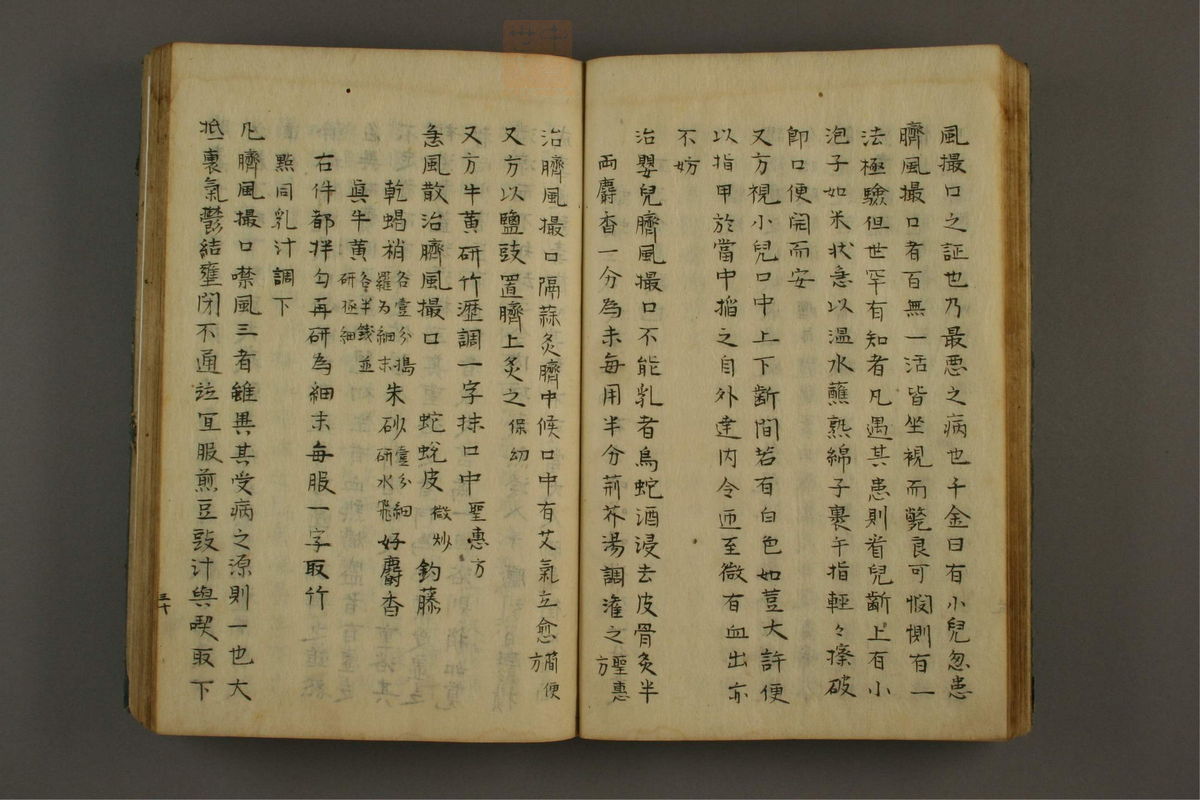 風撮口之証也乃最悪之病也千金曰有小兒忽患
臍風撮口者百無一活皆坐視而斃良可憫惻有一
法極驗但世罕有知者凡遇其患則看兒齗上有小
泡子如米状急以温水蘸熟綿子裹午指輕々擦破
即口便開而安
又方視小兒口中上下齗間若有白色如荳大許便
以指甲於當中搯之自外達内令匝至微有血出亦
不妨
治嬰兒臍風撮口不能乳者烏蛇酒浸去皮骨灸半
両麝香一分為末每用半分荊芥湯調灌之聖惠方
治臍風撮口隔蒜灸臍中候口中有艾氣立愈簡便方
又方以鹽豉置臍上灸之保幼
又方牛黄研竹瀝調一字抹口中聖惠方
急風散治臍風撮口 蛇蛻皮微炒 釣藤
乾蝎梢各壹分搗羅為細末 朱砂壹分細研水飛 好麝香
眞牛黄各半錢並研極細
右件都拌勻再研為細末每服一字取竹
點同乳汁調下
凡臍風撮口噤風三者雖異其受病之源則一也大
抵裏氣鬱結壅閉不通並宜服煎豆豉汁與喫取下
三十